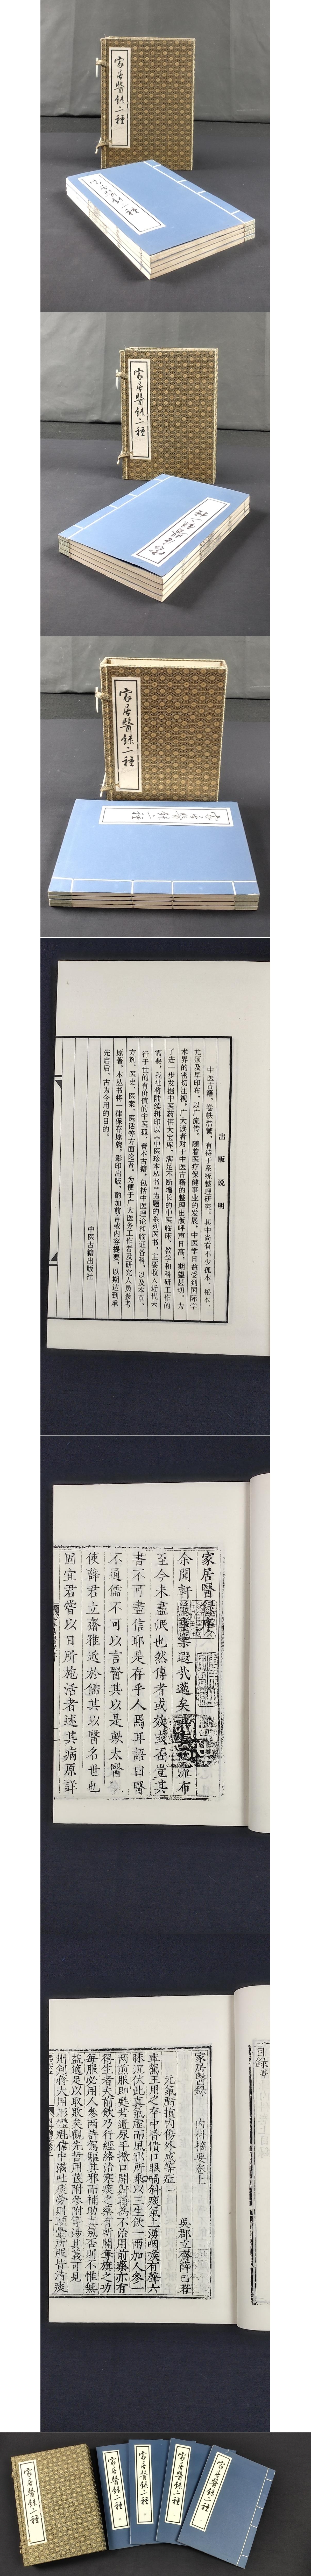 家居醫錄二種
家居醫錄二種
家居醫錄二種
家居醫錄二種
家居醫錄二種
家居醫錄二種
出版说明
中医古籍，卷帙浩繁，有待于系统整理研究。其中尚有不少孤本、秘本，
尤须及早印布，以广流传。随着医疗保健事业的发展，中医学日益受到国际学
术界的密切注视，广大读者对于中医古籍的整理出版呼声日高，期望甚切。为
了进一步发掘中医药伟大宝库，满足不断增长的中医临床、教学和科研工作的
需要，我社将陆续辑印以《中医珍本丛书》为题的系列医书，主要收入近代未
行于世的有价值的中医孤、善本古籍，包括中医理论和临证各科，以及本草、
方剂、医史、医案、医话等方面论著。为便于广大医务工作者及研究人员参考
原著，本丛书将一律保存原貌，影印出版，酌加前言或内容提要，以期达到承
先启后、古为今用的目的。
中医古籍出版社
家居醫錄序
余聞軒
至今未盡泯也然傳者或效或否豈其
書不可盡信耶是存乎人焉耳語曰醫
不通儒不可以言醫其以是歟太醫
使薛君立齋雅近於儒其以醫名世也
固宜君嘗以日所施活者述其病原詳
目錄
家居醫錄
內科摘要卷上
吳郡立齋薛己著
元氣虧損內傷外感等症一
車駕王用之卒中昏憒口眼喎斜痰氣上湧咽喉有聲六
脉沉伏此真氣虛而風邪所乘以三生飲一兩加人參一
兩煎服即甦若遺尿手撒口開鼾睡為不治用前藥亦有
得生者夫前飲乃行經絡治寒痰之藥有斬關奪旗之功
每服必用人參兩許駕驅其邪而補助真氣否則不惟無
益適足以取敗矣觀先哲用芪附參附等湯其義可見
州判蔣大用形體魁偉中滿吐痰勞則頭暈所服皆清痰
家居醫錄二種
家居醫錄二種
家居醫錄二種
家居醫錄二種
家居醫錄二種